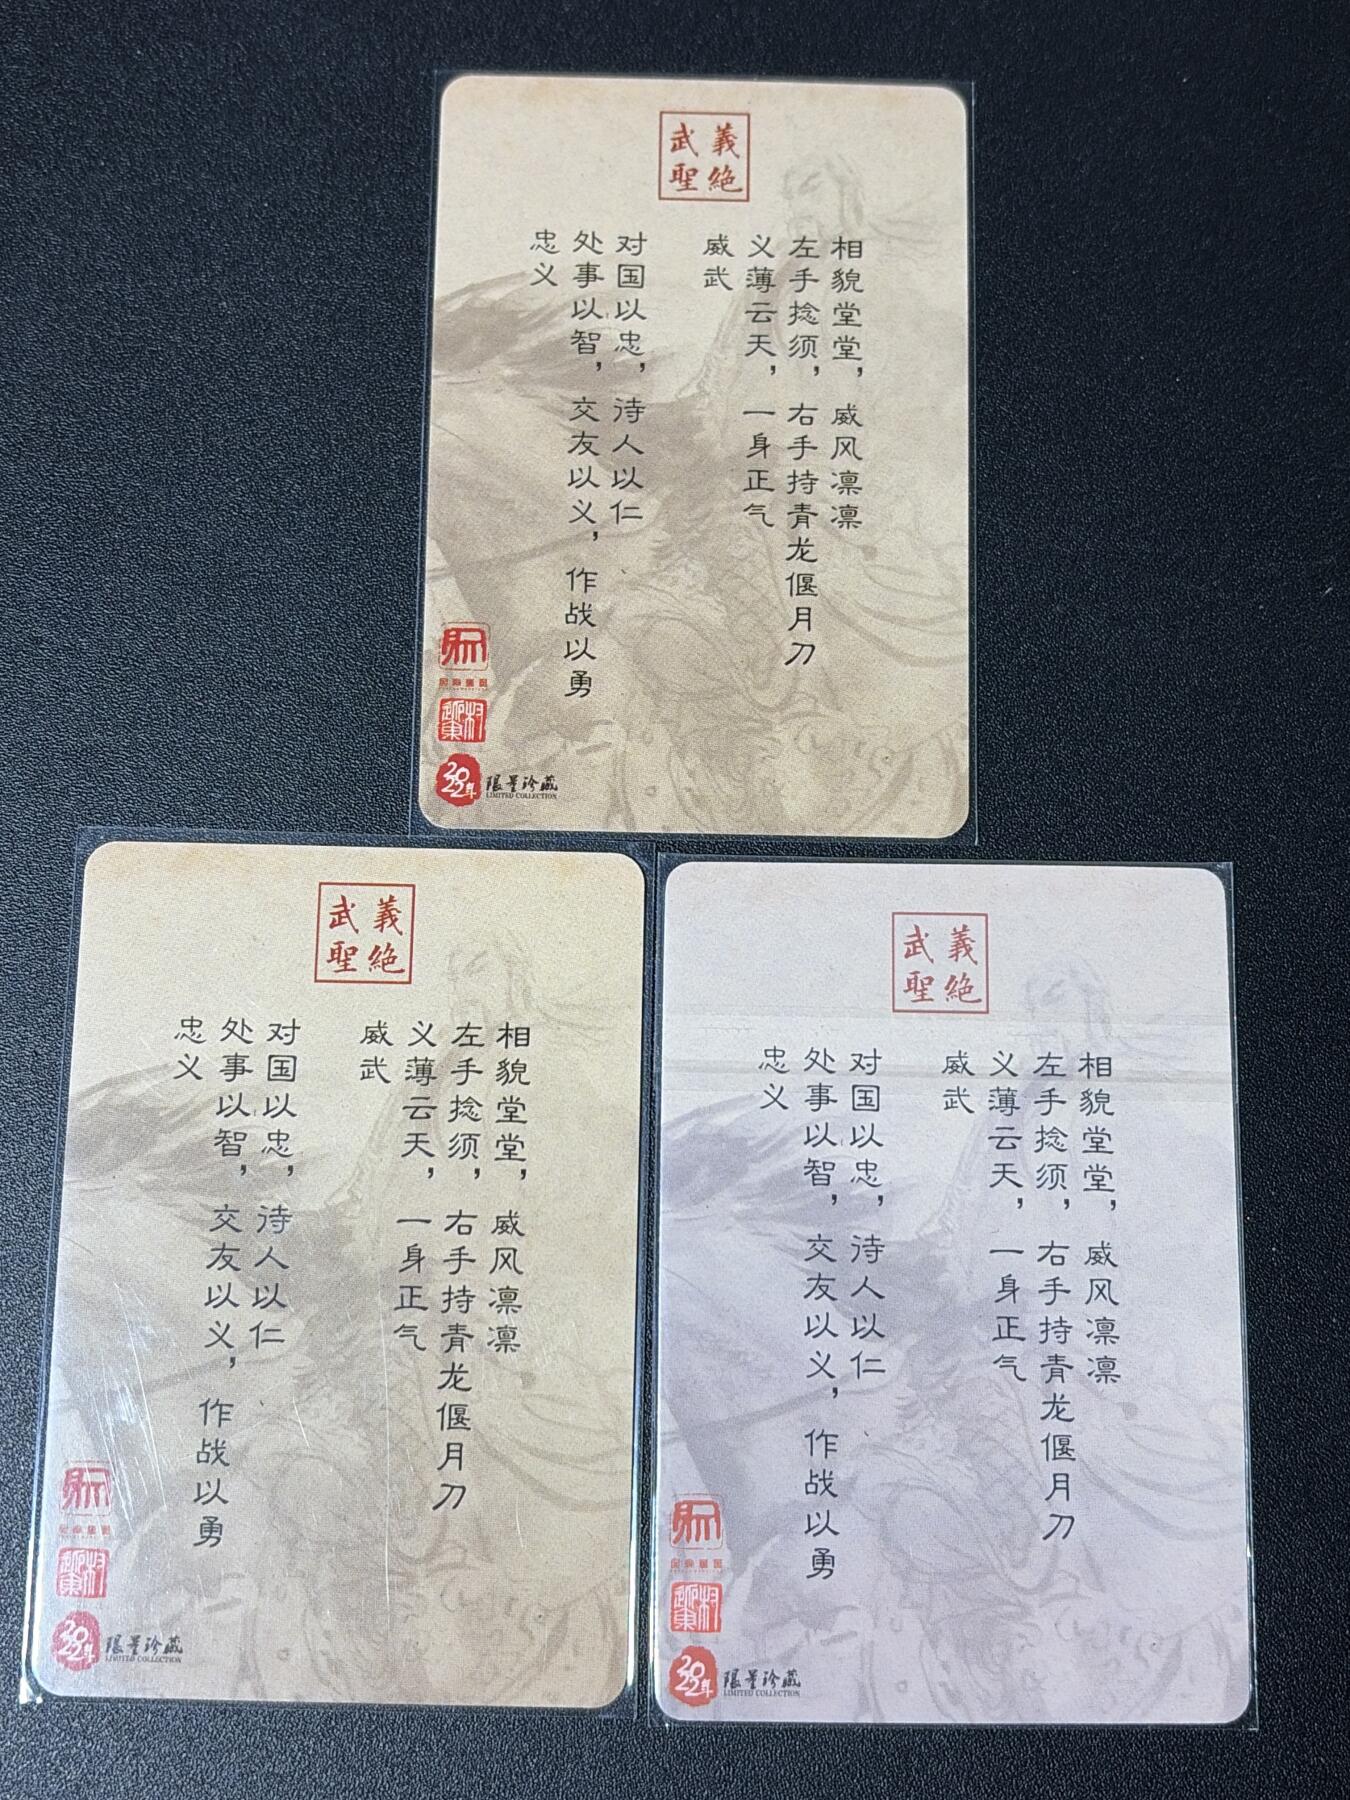 義絶
武聖
相貌堂堂，威风凛凛
左手捻须，右手持青龙偃月刀
义薄云天，一身正气
威武
对国以忠，待人以仁
处事以智，交友以义，作战以勇
忠义
2022年
限量珍藏
LIMITED COLLECTION
義絶
武聖
相貌堂堂，威风凛凛
左手捻须，右手持青龙偃月刀
义薄云天，一身正气
威武
对国以忠，待人以仁
处事以智，交友以义，作战以勇
忠义
2022年
限量珍藏
LIMITED COLLECTION
義絶
武聖
相貌堂堂，威风凛凛
左手捻须，右手持青龙偃月刀
义薄云天，一身正气
威武
对国以忠，待人以仁
处事以智，交友以义，作战以勇
忠义
2022年
限量珍藏
LIMITED COLLECTION